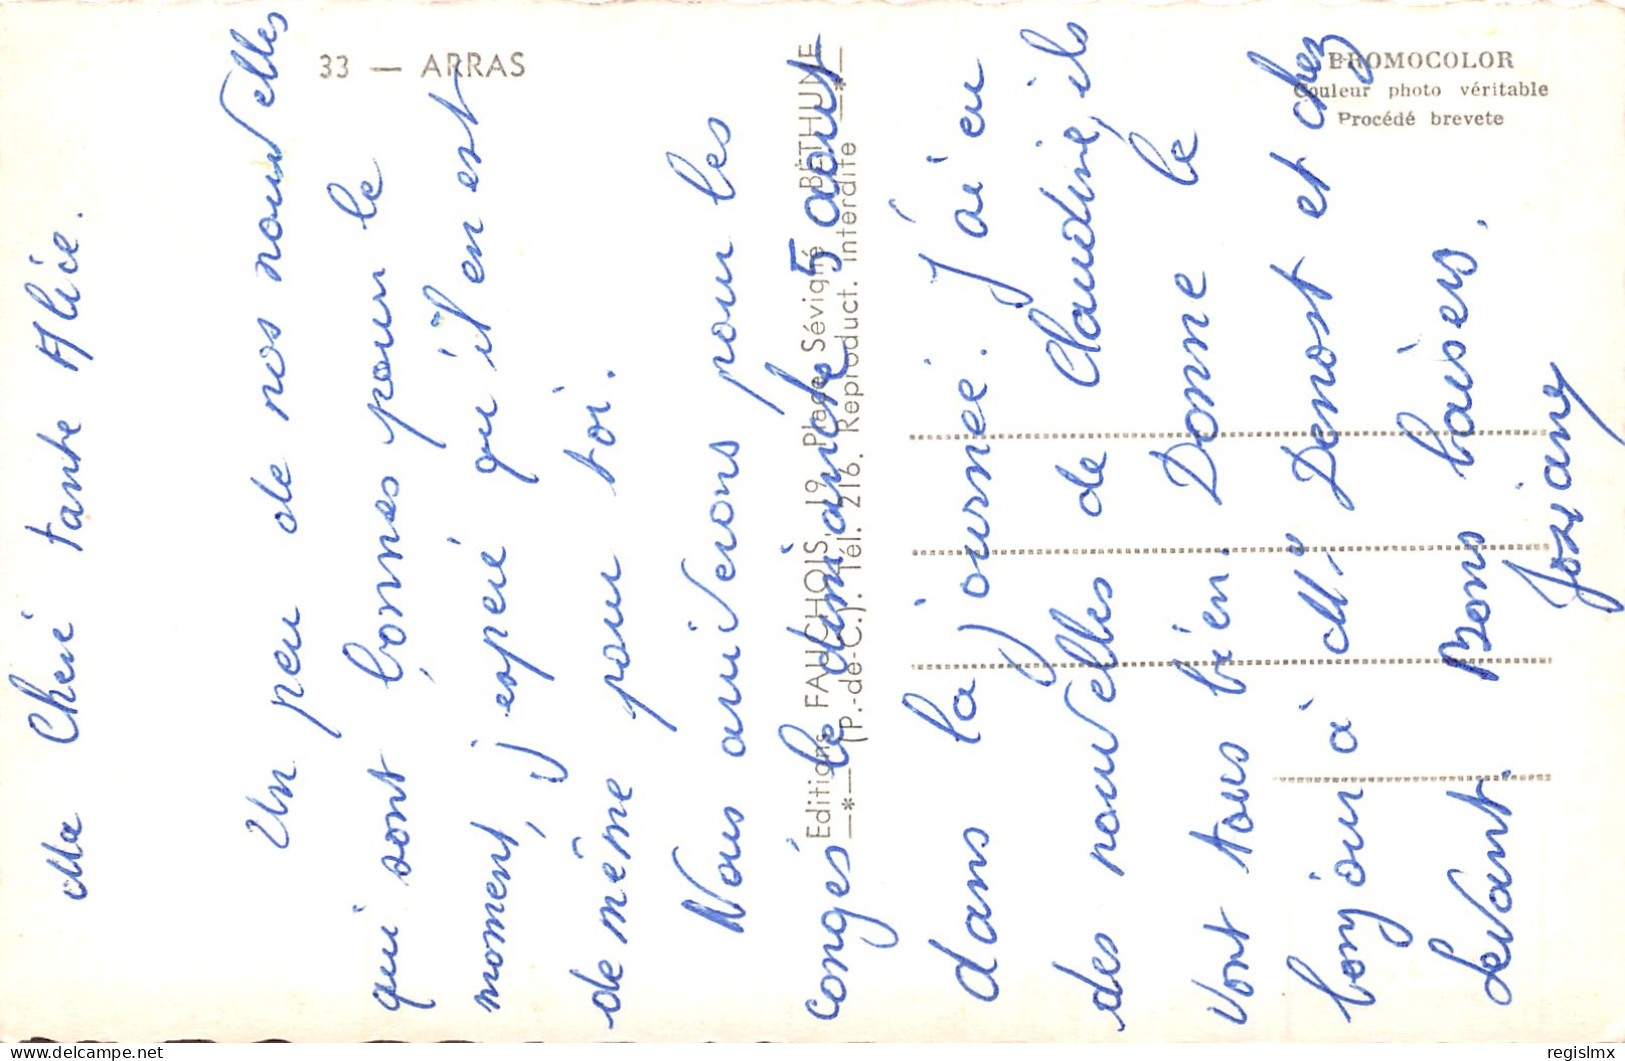 33 — ARRAS
PROMOCOLOR
Couleur photo véritable
Procédé brevete
Editions FAUCHOIS, 19, Place Sévigné BÉTHUNE
—*— (P.-de-C.). Tél. 216. Reproduct. interdite —*—
Ma Cheré tante Alice.
Un peu de nos nouvelles
qui sont bonnes pour le
moment, j'esperé qu'il en est
de même pour toi.
Nous arriverons pour les
congés le dimanche 5 aout
dans la journeé. J'ai eu
des nouvelles de Claudine, ils
vont tous bien. Donne le
bonjour à Mr Denost et chez
Levant. Bons baisers.
Josiane
regislmx